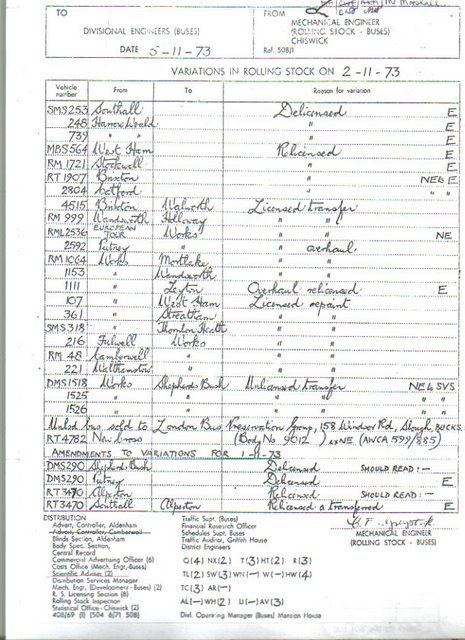 TO
FROM
DIVISIONAL ENGINEERS (BUSES)
MECHANICAL ENGINEER
(ROLLING STOCK - BUSES)
CHISWICK
DATE 5-11-73
Ref. 508/1
VARIATIONS IN ROLLING STOCK ON 2-11-73
Vehicle number From To Reason for variation
SMS253 Southall Delicensed E
248 Harrow Weald " E
739 " " " E
MBS564 West Ham Relicensed E
RM 1721 Stockwell " E
RT 1907 Brixton " NE& E
2804 Catford " " "
4515 Brixton Walworth Licensed transfer
RM 999 Wandsworth Holloway " "
RML2536 EUROPEAN TOUR Works " " NE
2592 Putney " " overhaul
RM 1064 Works Mortlake " "
1153 " Wandsworth " "
1111 " Leyton Overhaul relicensed E
107 " West Ham Licensed repaint
361 " Streatham " "
SMS 318 " Thornton Heath " "
216 Fulwell Works " "
RM 48 Camberwell " " "
221 Walthamstow " " "
DMS1518 Works Shepherds Bush Unlicensed transfer NE& SVS
1525 " " " " "
1526 " " " " "
Unlsd bus sold to London Bus Preservation Group, 158 Windsor Rd, Slough, BUCKS
RT4782 New Cross (Body No 9012) ex NE (AWCA 599/885)
AMENDMENTS TO VARIATIONS FOR 1-11-73
DMS290 Shepherds Bush Delicensed SHOULD READ:-
DMS290 Putney Delicensed E
RT3470 Alperton Relicensed SHOULD READ:-
RT3470 Southall Alperton Relicensed & transferred E
DISTRIBUTION
Advert. Controller, Aldenham
Advert. Controller, Camberwell
Blinds Section, Aldenham
Body Spd. Section,
Central Record
Commercial Advertising Officer (6)
Costs Office (Mech. Engr-Buses)
Scientific Adviser (2)
Distribution Services Manager
Mech. Engr. (Development - Buses) (2)
R. S. Licensing Section (8)
Rolling Stock Inspection
Statistical Office - Chiswick (2)
408/69 (I) (504 6/71 508)
Traffic Supt. (Buses)
Financial Research Officer
Schedules Supt. Buses
Traffic Auditor, Griffith House
District Engineers
Q(4) NX(2) T(3) HT(2) R(3)
TL(2) SW(3) WN(-) W(-) HW(4)
TC(3) AR(-)
AL(-) WH(2) LI(-) AV(3)
Divl. Operating Manager (Buses) Mansion House
MECHANICAL ENGINEER
(ROLLING STOCK - BUSES)